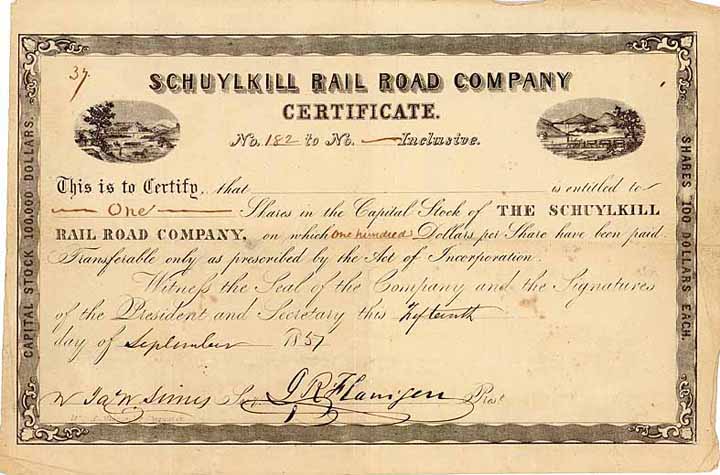 37.
SCHUYLKILL RAIL ROAD COMPANY
CERTIFICATE.
No. 182 to No. — Inclusive.
This is to Certify, that is entitled to
— One — Shares in the Capital Stock of THE SCHUYLKILL
RAIL ROAD COMPANY, on which One hundred Dollars per Share have been paid
Transferable only as prescribed by the Act of Incorporation.
Witness the Seal of the Company and the Signatures
of the President and Secretary this fifteenth
day of September 1857
W Sec. J R Flanigen Prest
CAPITAL STOCK 100,000 DOLLARS.
SHARES 100 DOLLARS EACH.